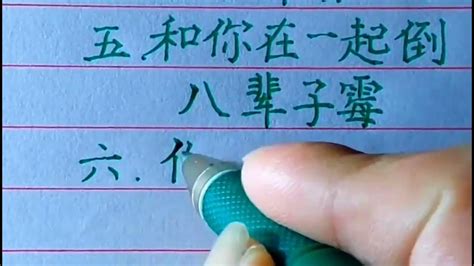 五.和你在一起倒
八辈子霉
六.